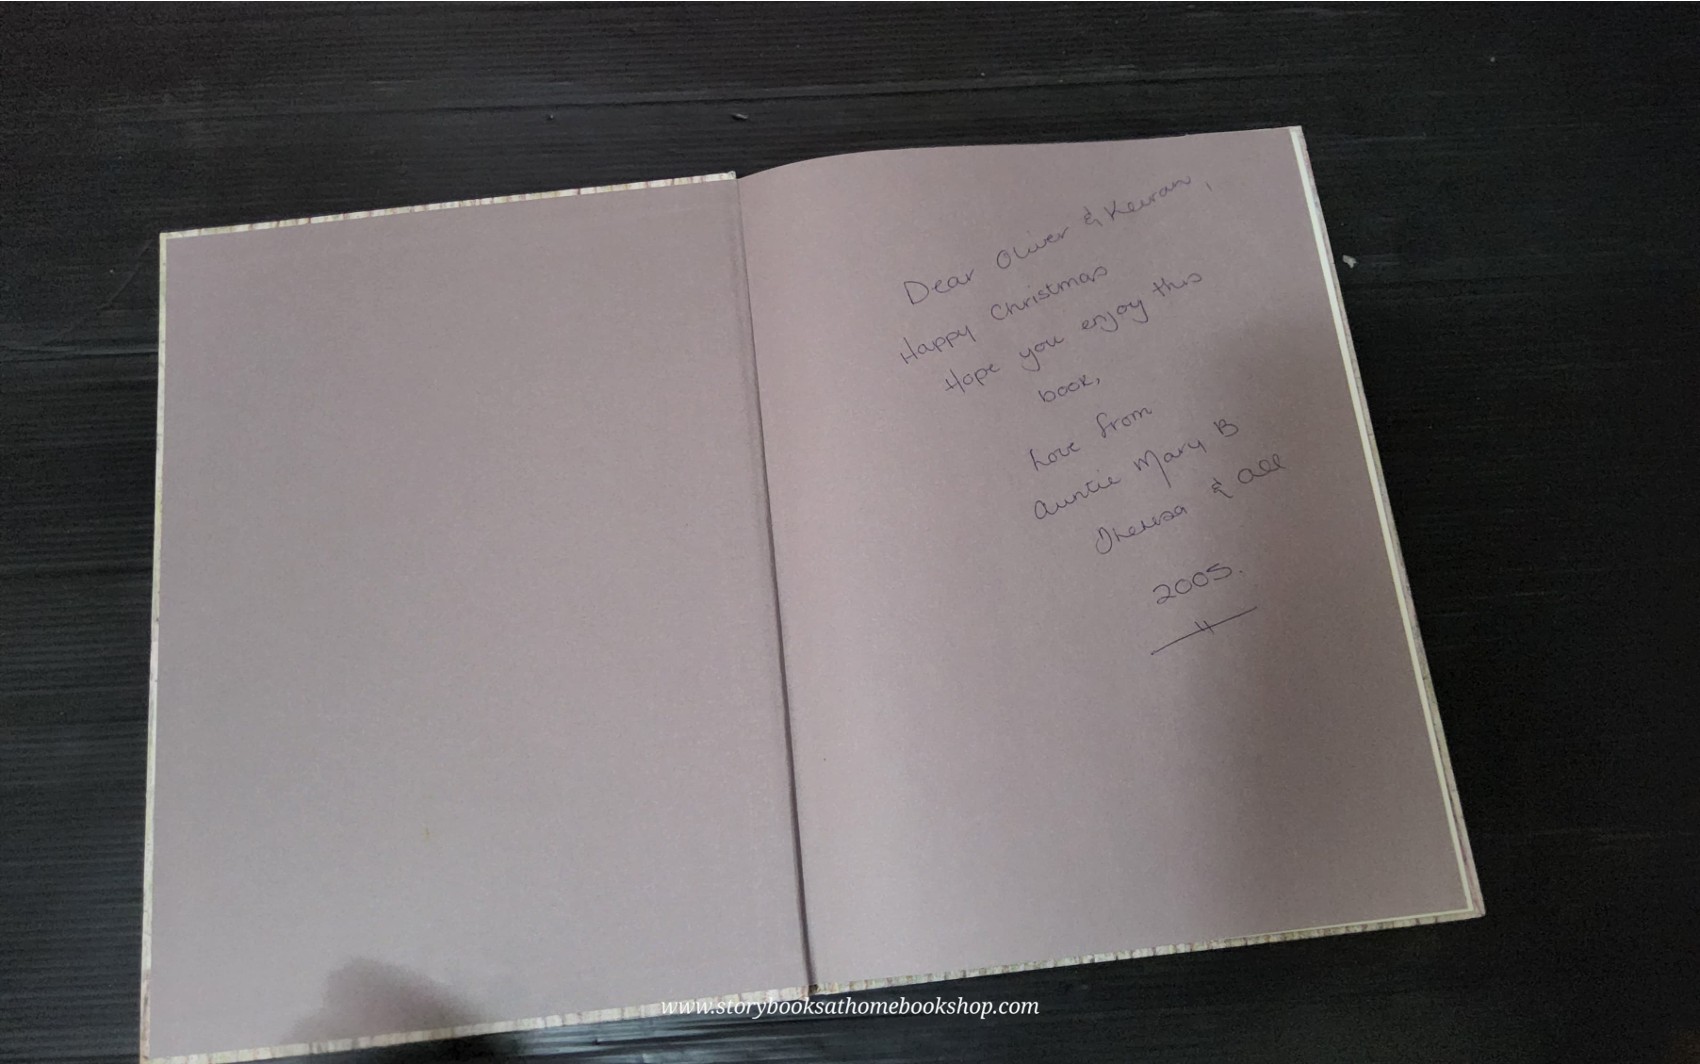 Dear Oliver & Keiran,
Happy Christmas
Hope you enjoy this
book,
Love from
Auntie Mary B
Theresa & all
2005.
www.storybooksathomebookshop.com